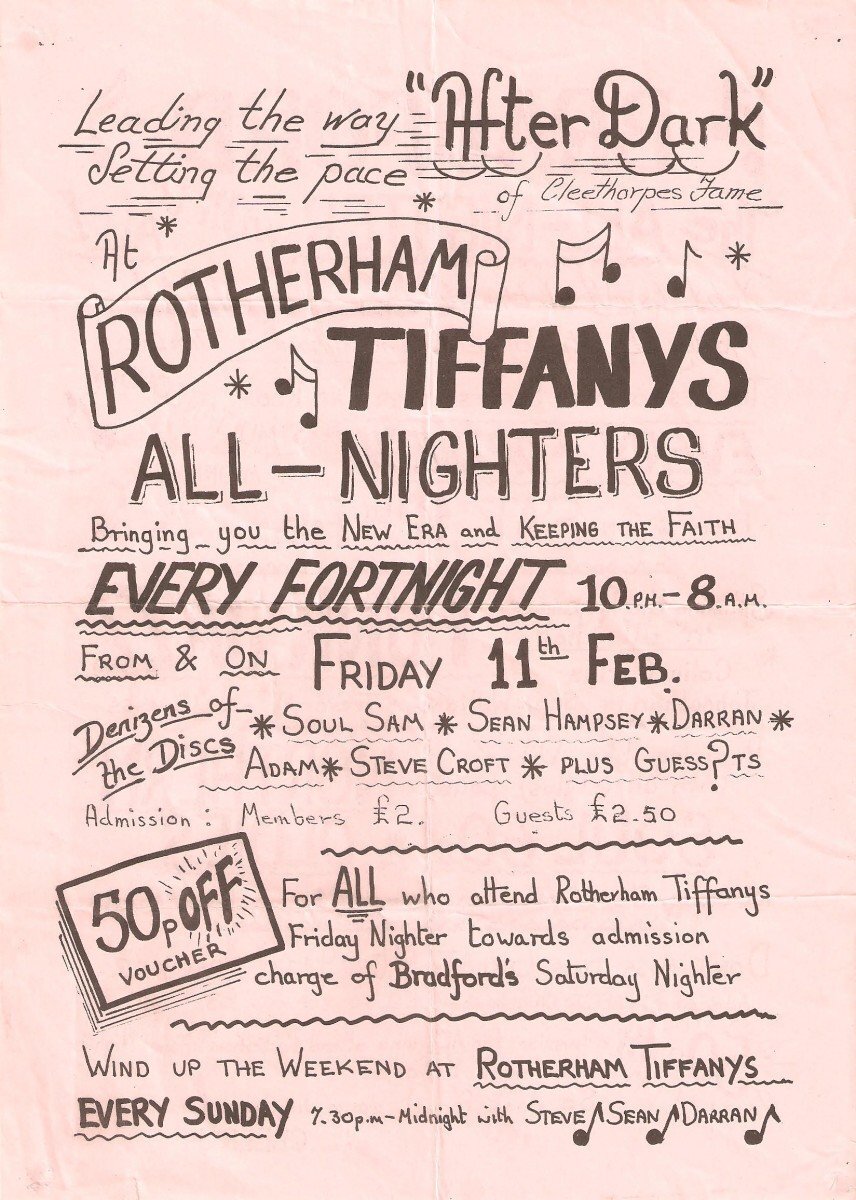 Leading the way "After Dark"
Setting the pace of Cleethorpes Fame
At
ROTHERHAM
TIFFANYS
ALL-NIGHTERS
Bringing you the NEW ERA and KEEPING THE FAITH
EVERY FORTNIGHT 10.P.M.-8.A.M.
FROM & ON FRIDAY 11th FEB.
Denizens of the Discs
* SOUL SAM * SEAN HAMPSEY * DARRAN *
ADAM * STEVE CROFT * PLUS GUESS?TS
Admission: Members £2. Guests £2.50
50p OFF
VOUCHER
For ALL who attend Rotherham Tiffanys
Friday Nighter towards admission
charge of Bradford's Saturday Nighter
WIND UP THE WEEKEND AT ROTHERHAM TIFFANYS
EVERY SUNDAY 7.30p.m-Midnight with STEVE SEAN DARRAN